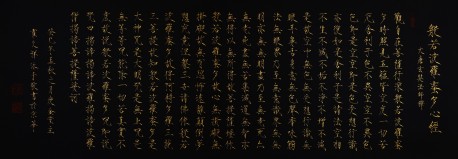 般若波羅蜜多心經
大唐玄奘法師譯
觀自在菩薩行深般若波羅蜜
多時照見五蘊皆空度一切苦
厄舍利子色不異空空不異色
色即是空空即是色受想行識
亦復如是舍利子是諸法空相
不生不滅不垢不淨不增不減
是故空中無色無受想行識無
眼耳鼻舌身意無色聲香味觸
法無眼界乃至無意識界無無
明亦無無明盡乃至無老死亦
無老死盡無苦集滅道無智亦
無得以無所得故菩提薩埵依
般若波羅蜜多故心無罣礙無
罣礙故無有恐怖遠離顛倒夢
想究竟涅槃三世諸佛依般若
波羅蜜多故得阿耨多羅三藐
三菩提故知般若波羅蜜多是
大神咒是大明咒是無上咒是
無等等咒能除一切苦真實不
虛故說般若波羅蜜多咒即說
咒曰揭諦揭諦波羅揭諦波羅
僧揭諦菩提薩婆訶